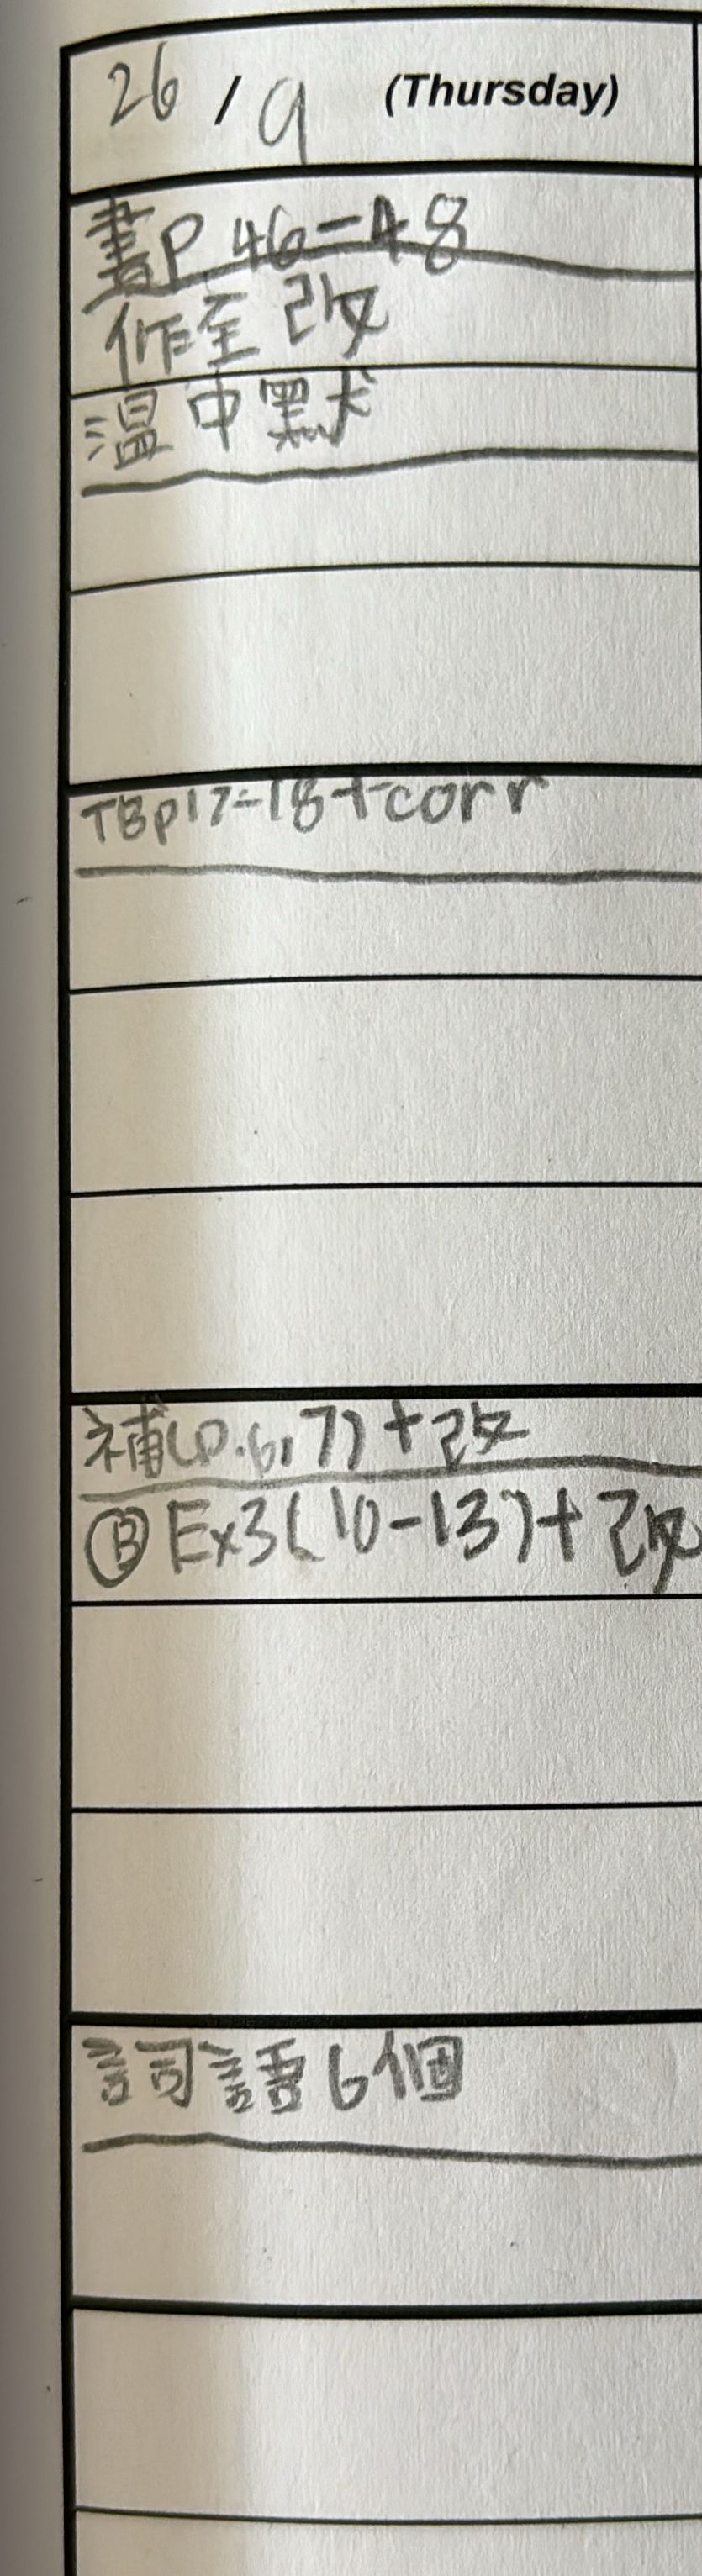 26 / 9 (Thursday)
書P 46-48
作至改
溫中默
TBp17-18+corr
補(p.6,7)+改
Ⓑ Ex3(10-13)+改
詞語6個